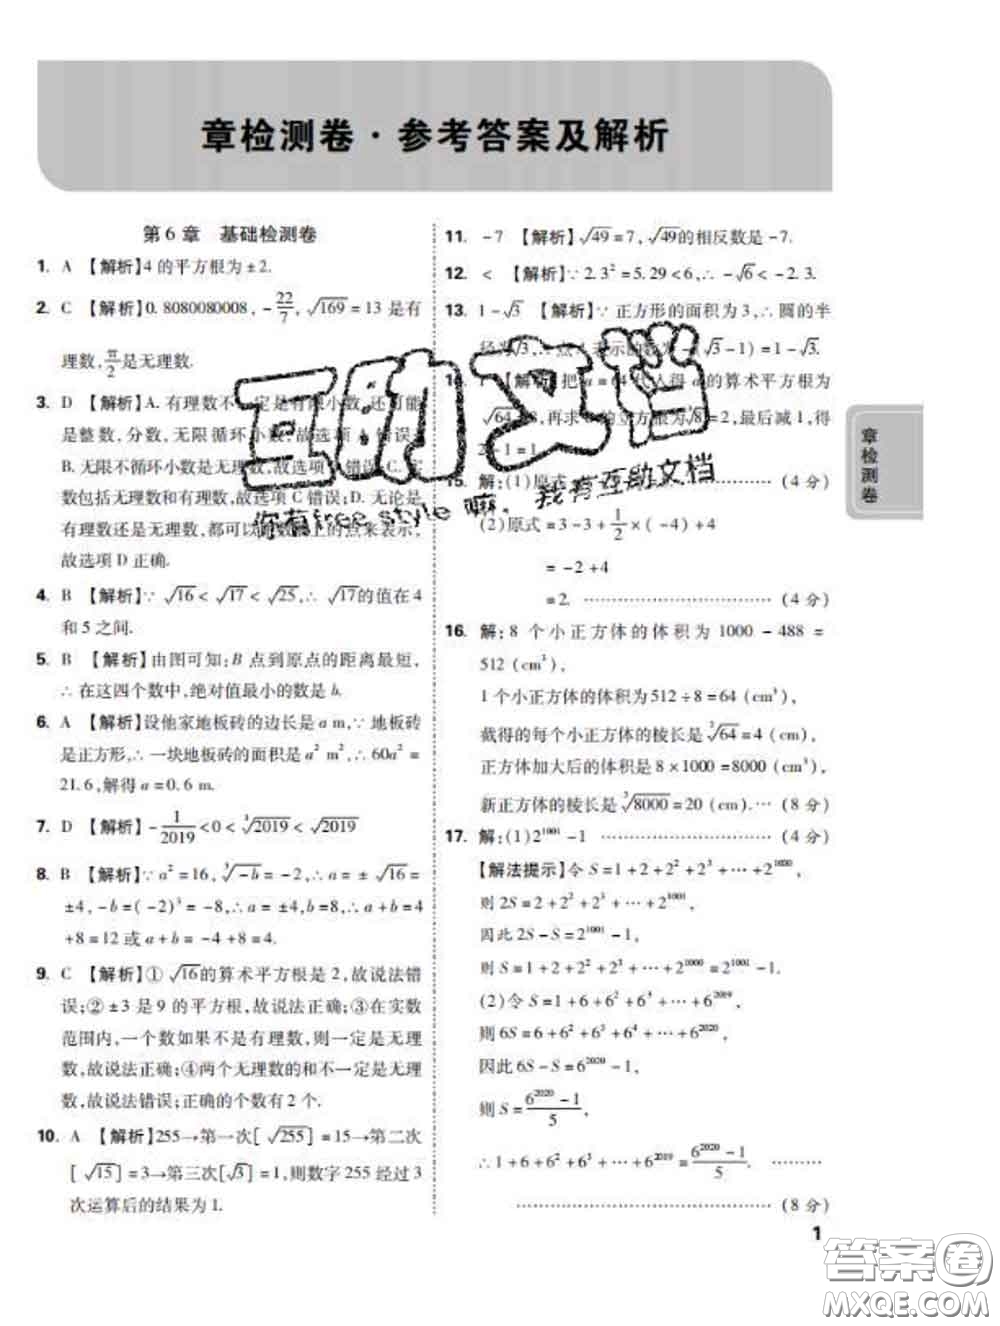 章检测卷·参考答案及解析
第 6 章 基础检测卷
1. A 【解析】4 的平方根为 ±2.
2. C 【解析】0.8080080008, -22/7, √169 = 13 是有
理数, π/2 是无理数.
3. D 【解析】A. 有理数不一定是有限小数, 还可能
是整数, 分数, 无限循环小数, 故选项 A 错误;
B. 无限不循环小数是无理数, 故选项 B 错误; C. 实
数包括有理数和无理数, 故选项 C 错误; D. 无论是
有理数还是无理数, 都可以用数轴上的点来表示,
故选项 D 正确.
4. B 【解析】∵ √16 < √17 < √25, ∴ √17的值在 4
和 5 之间.
5. B 【解析】由图可知: B 点到原点的距离最短,
∴ 在这四个数中, 绝对值最小的数是 b.
6. A 【解析】设他家地板砖的边长是 a m, ∵ 地板砖
是正方形, ∴ 一块地板砖的面积是 a² m², ∴ 60a² =
21.6, 解得 a = 0.6 m.
7. D 【解析】-1/2019 < 0 < ³√2019 < √2019
8. B 【解析】∵ a² = 16, ³√-b = -2, ∴ a = ± √16 =
±4, -b = (-2)³ = -8, ∴ a = ±4, b = 8, ∴ a + b = 4
+8 = 12 或 a + b = -4 + 8 = 4.
9. C 【解析】① √16的算术平方根是 2, 故说法错
误; ② ±3 是 9 的平方根, 故说法正确; ③在实数
范围内, 一个数如果不是有理数, 则一定是无理
数, 故说法正确; ④两个无理数的和不一定是无理
数, 故说法错误; 正确的个数有 2 个.
10. A 【解析】255→第一次[ √255 ] = 15→第二次
[ √15 ] = 3→第三次[ √3 ] = 1, 则数字 255 经过 3
次运算后的结果为 1.
11. -7 【解析】√49 = 7, √49的相反数是 -7.
12. < 【解析】∵ 2.3² = 5.29 < 6, ∴ -√6 < -2.3.
13. 1-√3 【解析】∵ 正方形的面积为 3, ∴ 圆的半
径为√3, ∴ 点 A 表示的数为 -(√3 - 1) = 1 - √3.
14. 1 【解析】把 a = 64 代入得 a 的算术平方根为
√64 = 8, 再求 8 的立方根为 ³√8 = 2, 最后减 1, 得
2 - 1 = 1.
15. 解: (1)原式 (4 分)
(2)原式 = 3 - 3 + 1/2 × (-4) + 4
= -2 + 4
= 2. (4 分)
16. 解: 8 个小正方体的体积为 1000 - 488 =
512 (cm³),
1 个小正方体的体积为 512 ÷ 8 = 64 (cm³),
截得的每个小正方体的棱长是 ³√64 = 4 (cm),
正方体加大后的体积是 8 × 1000 = 8000 (cm³),
新正方体的棱长是 ³√8000 = 20 (cm). … (8 分)
17. 解: (1) 2¹⁰⁰¹ - 1 (4 分)
【解法提示】令 S = 1 + 2 + 2² + 2³ + … + 2¹⁰⁰⁰,
则 2S = 2 + 2² + 2³ + … + 2¹⁰⁰¹,
因此 2S - S = 2¹⁰⁰¹ - 1,
则 S = 1 + 2 + 2² + 2³ + … + 2¹⁰⁰⁰ = 2¹⁰⁰¹ - 1.
(2) 令 S = 1 + 6 + 6² + 6³ + … + 6²⁰¹⁹,
则 6S = 6 + 6² + 6³ + 6⁴ + … + 6²⁰²⁰,
因此 6S - S = 6²⁰²⁰ - 1,
则 S = (6²⁰²⁰ - 1)/5,
∴ 1 + 6 + 6² + 6³ + … + 6²⁰¹⁹ = (6²⁰²⁰ - 1)/5.
(8 分)
章检测卷
1
互助文档
你有free style嘛, 我有互助文档
答案圈
MXQE.COM